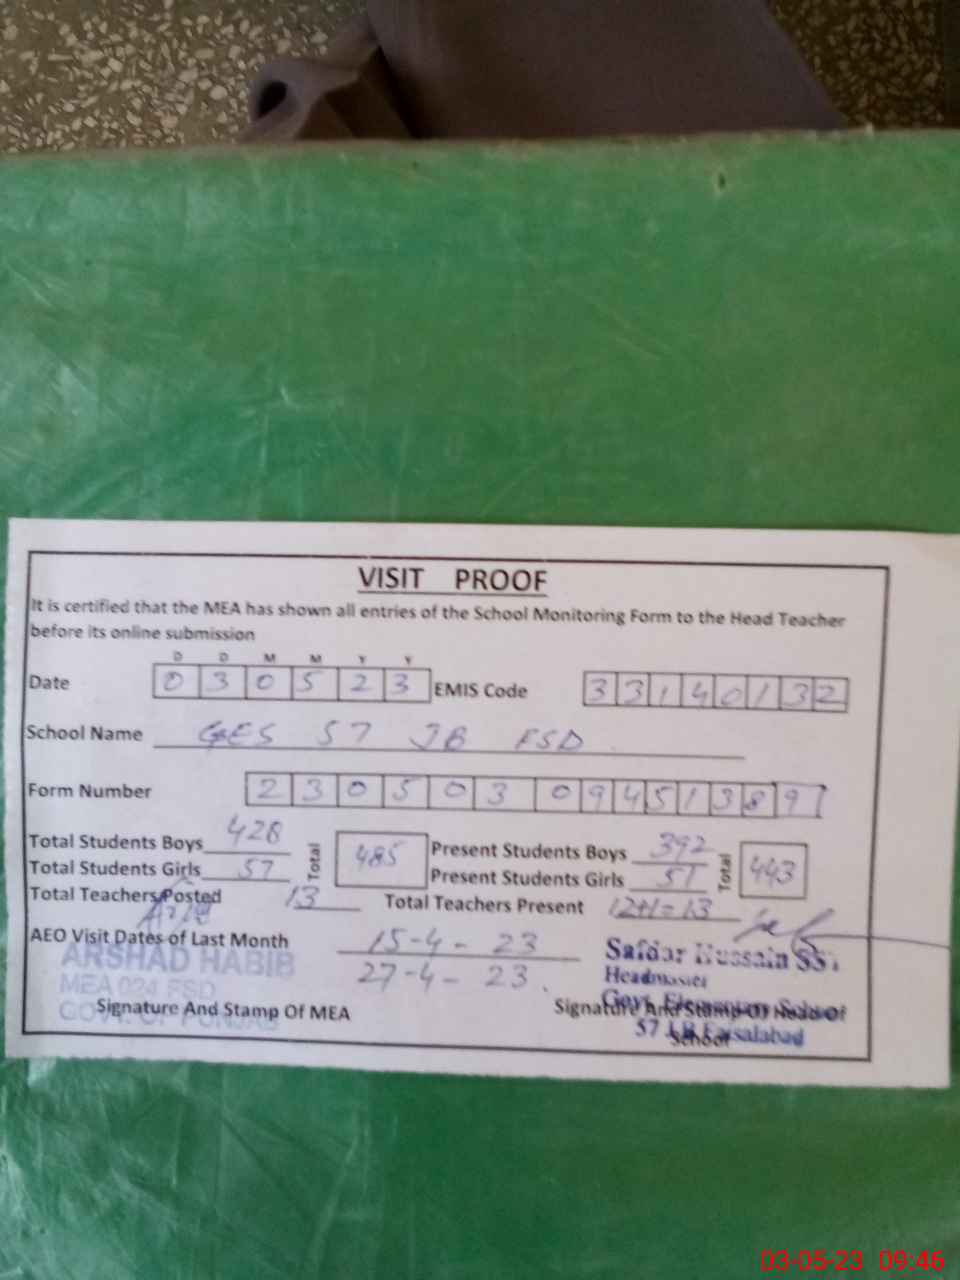 VISIT PROOF
It is certified that the MEA has shown all entries of the School Monitoring Form to the Head Teacher
before its online submission
D D M M Y Y
Date 0 3 0 5 2 3 EMIS Code 3 3 1 4 0 1 3 2
School Name GES 57 JB FSD
Form Number 2 3 0 5 0 3 0 9 4 5 1 3 8 9
Total Students Boys 428 Total 485 Present Students Boys 392 Total 443
Total Students Girls 57 Present Students Girls 51
Total Teachers Posted 13 Total Teachers Present 12+1=13
AEO Visit Dates of Last Month 15-4-23
27-4-23.
ARSHAD HABIB
MEA 024 FSD
GOVT. OF PUNJAB
Signature And Stamp Of MEA
Safdar Hussain SST
Headmaster
Govt. Elementary School
57 J.B Faisalabad
Signature And Stamp Of Head Of
School
03-05-23 09:46